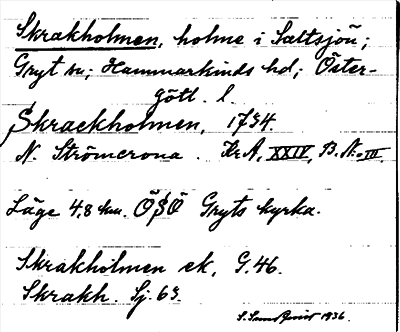 Skrakholmen, holme i Saltsjön;
Gryt sn; Hammarkinds hd; Öster-
götl. l.
Skrackholmen, 1734.
N. Strömcrona. Kr.A, XXIV, B. N:o III.
Läge 4,8 km. ÖSÖ Gryts kyrka.
Skrakholmen ek, G. 46.
Skrakh. Sj. 63.
1936.